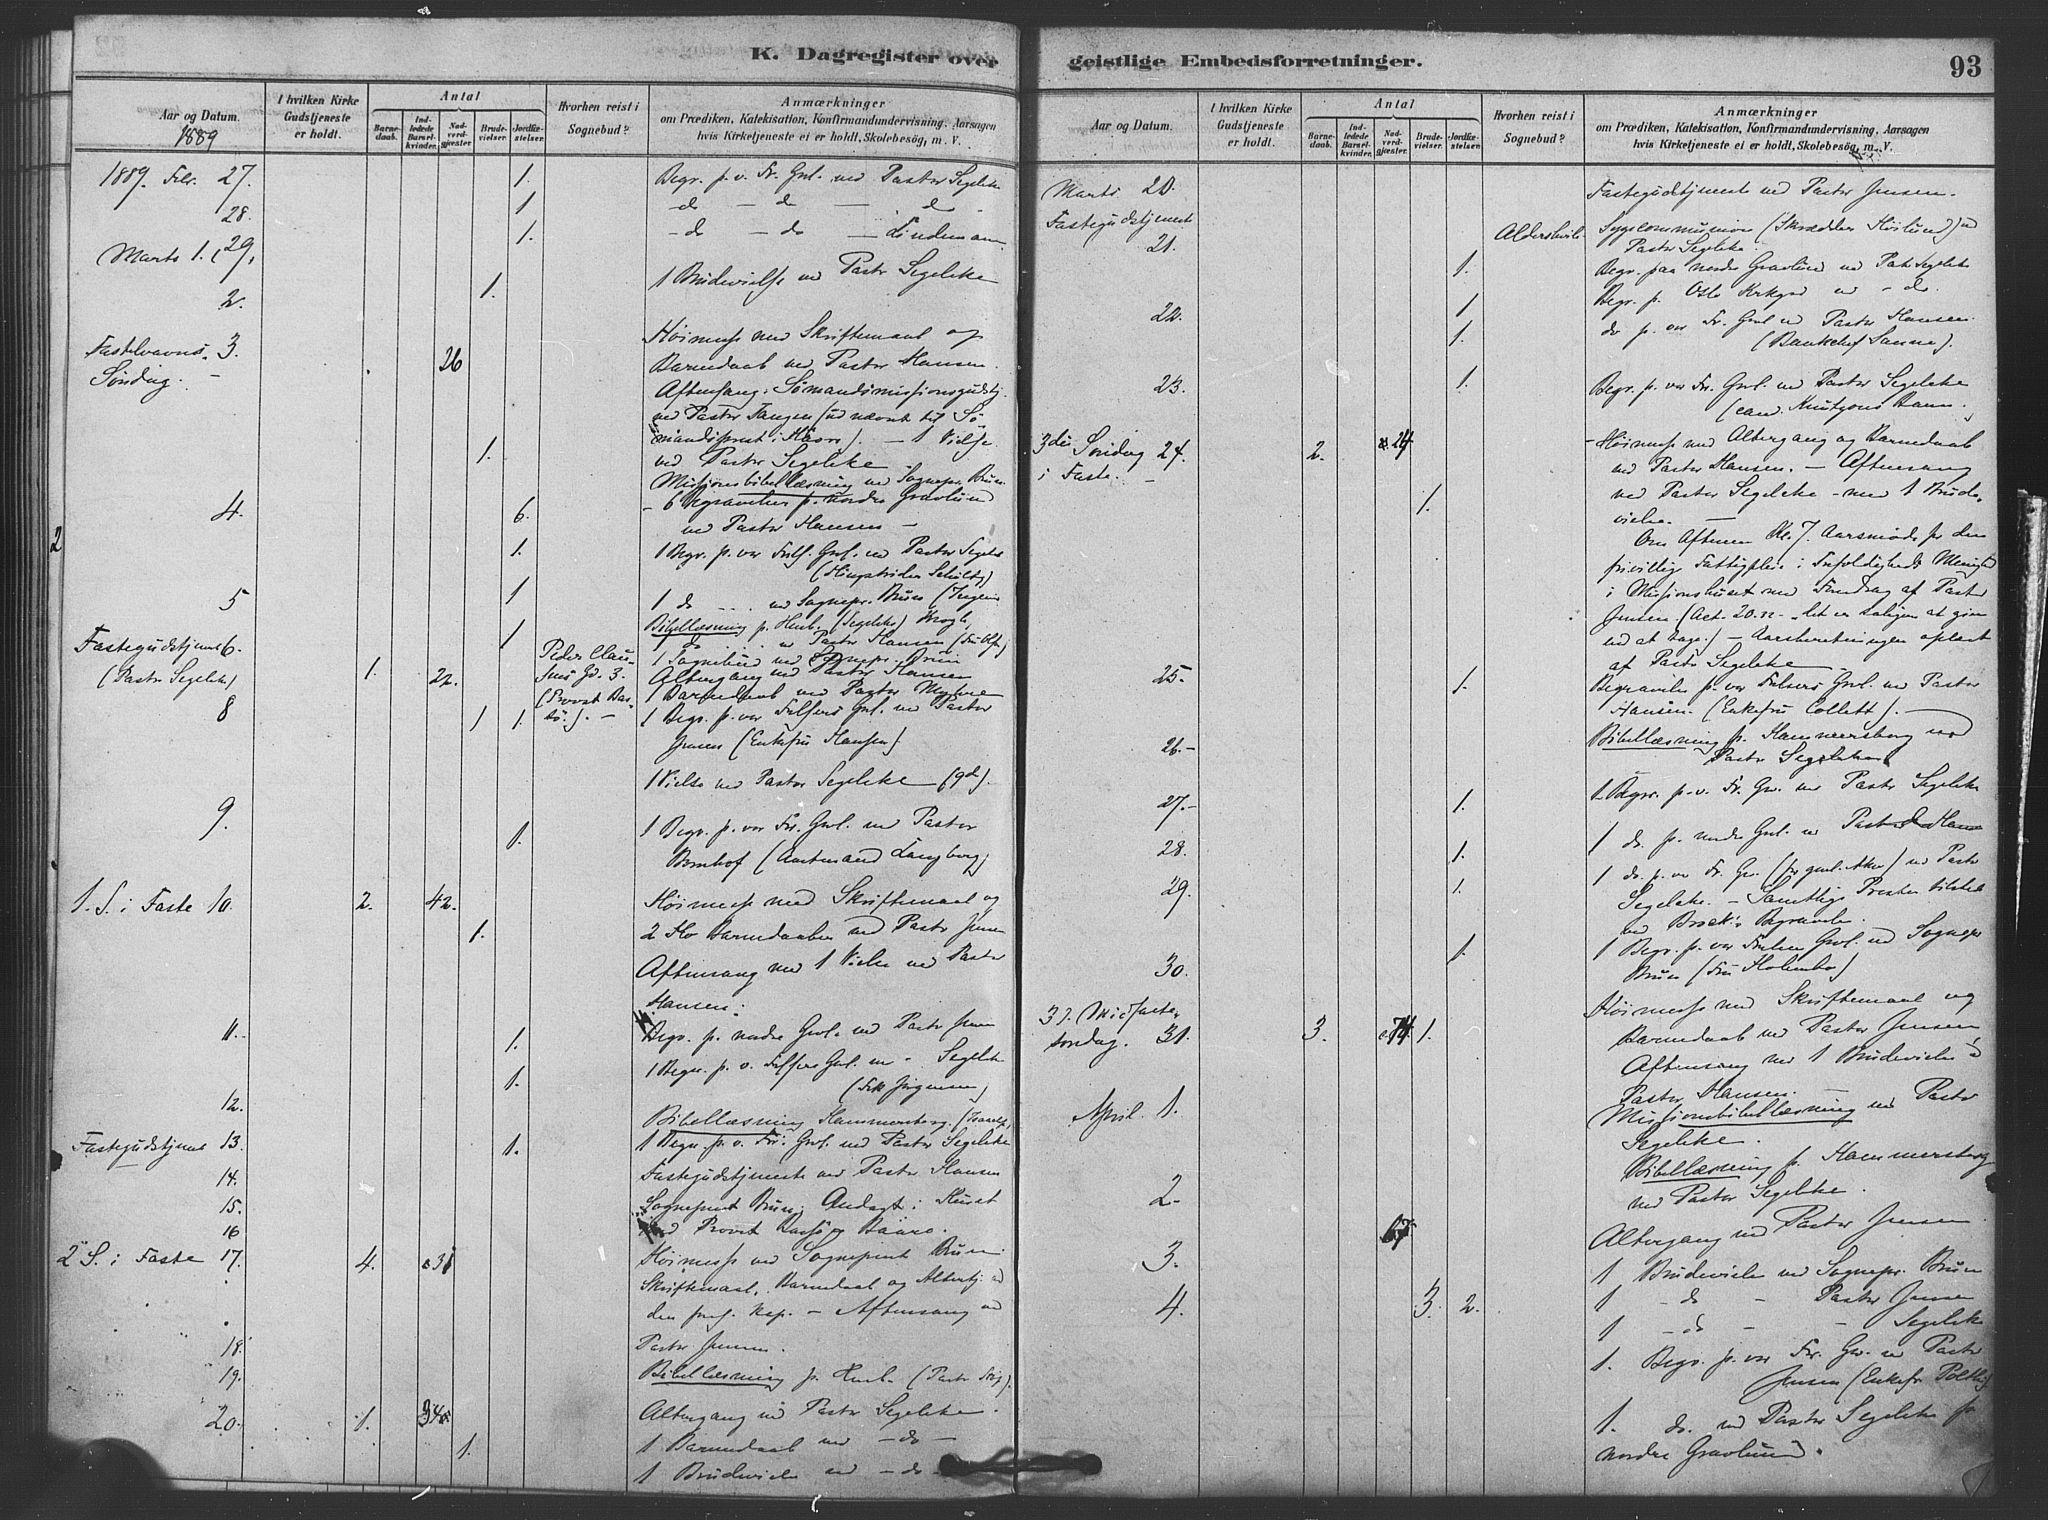 K. Dagregister over
Aar og Datum.
1889
I hvilken Kirke
Gudstjeneste
er holdt.
Antal
Barne-
daab.
Ind-
ledede
Barsel-
kvinder.
Nad-
verd-
gjæster.
Brude-
vielser.
Jordfæ-
stelser.
Hvorhen reist i
Sognebud?
Anmærkninger
om Prædiken, Katekisation, Konfirmandundervisning, Aarsagen
hvis Kirketjeneste ei er holdt, Skolebesøg, m. V.
1889. Febr. 27. 1. Begr. p. v. Fr. Grl. ved Pastor Segelcke
28. 1 do - do - do
Marts 1. (29, 1. - do - do - Lindeman
1. 1 Brudevielse ved Pastor Segelcke
2.
Fastelavns- 3. 26 Høimesse med Skriftemaal og
Søndag. - Barnedaab ved Pastor Hansen.
Aftensang. Sømandsmissionsgudstj.
ved Pastor Tangen (udnævnt til Sø-
mandsprest i Havre). - 1 Vielse
1. ved Pastor Segelcke.
Missionsbibellæsning ved Sognepr. Bruun
4. 6. - 6 Begravelser p. nordre Gravlund
ved Pastor Hansen -
1. 1 Begr. p. vor Frels. Grvl. ved Pastor Segelcke
5 1 1 do ... ved Sognepr. Bruun
Bibellæsning p. Henb. (Segelcke)
Fastegudstjenest 6. 1 1 do ... ved Pastor Hansen
(Pastor Segelcke) 1. 22. Peder Clau-
søns Gd. 3.
(Provst Bar-
1 Sognebud ved Sognepr. Bruun
Altergang ved Pastor Hansen
1 Barnedaab ved Pastor
8 1 1. 1 Begr. p. vor Frelsers Grvl. ved Pastor
Jensen (Enkefru Hansen)
1 Vielse ved Pastor Segelcke
9. 1. 1 Begr. p. vor Fr. Grvl. ved Pastor
Bomhof (Amtmand Langberg)
1. S. i Faste 10. 2. 42. Høimesse med Skriftemaal og
1. 2 Barnedaab ved Pastor Jensen
Aftensang med 1 Vielse ved Pastor
Hansen.
11. 1. Begr. p. nordre Grvl. ved Pastor Jensen
1. 1 Begr. p. v. Frelsers Grvl. ved Segelcke
12. Bibellæsning Hammersborg.
Fastegudstjenest 13. 1. 1 Begr. p. v. Fr. Grvl. ved Pastor Segelcke
14. Fastegudstjeneste ved Pastor Hansen
15. Sogneprest Bruun, Andagt i Huset
16 ved Provst
2 S. i Faste 17. 4. 31 Høimesse ved Sogneprest Bruun.
Skriftemaal, Barnedaab og Altertj. ved
den pers. kap. - Aftensang ved
18. Pastor Jensen.
19. Bibellæsning p. Henb. (Pastor
20. 1. 34 Altergang ved Pastor Segelcke.
1. 1 Barnedaab ved - do -
1 Brudevielse ved - do -
geistlige Embedsforretninger.
93
Aar og Datum.
I hvilken Kirke
Gudstjeneste
er holdt.
Antal
Barne-
daab.
Ind-
ledede
Barsel-
kvinder.
Nad-
verd-
gjæster.
Brude-
vielser.
Jordfæ-
stelser
Hvorhen reist i
Sognebud?
Anmærkninger
om Prædiken, Katekisation, Konfirmandundervisning, Aarsagen
hvis Kirketjeneste ei er holdt, Skolebesøg, m. V.
Marts 20. Fastegudstjeneste ved Pastor Jensen.
Fastegudstjeneste
21. Aldershvile Sygecommunion (Skrædder Høilund) ved
Pastor Segelcke.
1. Begr. paa nordre Gravlund ved Past. Segelcke
22. 1 Begr. p. Oslo Kirkgrd ved - do.
1. do p. vor Fr. Grvl ved Pastor Hansen.
(Bankchef Sanne).
23. 1. Begr. p. vor Fr. Grvl. ved Pastor Segelcke
3die Søndag 24. 2. 24 - Høimesse med Altergang og Barnedaab
i Faste. - ved Pastor Hansen. - Aftensang
1. ved Pastor Segelcke - med 1 Brude-
vielse. -
Om Aftenen Kl. 7. Aarsmøde for den
frivillige Fattigpleie i Trefoldigheds Menighed
i Missionshuset med Foredrag af Pastor
Jensen (Act. 20. - det er saligere at give
end at tage.) - Aarsberetningen oplæst
af Pastor Segelcke
25. 1. Begravelse p. vor Frelsers Grvl. ved Pastor
Hansen. (Enkefru Collett). -
26. - Bibellæsning p. Hammersborg ved
Pastor Segelcke
27. - 1. 1 Begr. p. v. Fr. Gr. ved Pastor Segelcke
28. 1. 1 do. p. nordre Grvl. ved Pastor
29. 1. 1 do. p. vor Fr. Gr. ved Pastor
Segelcke. - Samtlige Prester tilstede
ved Brock's Begravelse.
1. 1 Begr. p. vor Frelsers Grvl. ved Sognepr
30. Bruun (Fru Holmboe)
Midfaste-
søndag. 31. 3. 74. 1. Høimesse med Skriftemaal og
Barnedaab ved Pastor Jensen,
Aftensang med 1 Brudevielse ved
Pastor Hansen. -
April 1. Missionsbibellæsning ved Pastor
Segelcke.
2. Bibellæsning p. Hammersborg
ved Pastor Segelcke.
3. 67 Altergang ved Pastor Jensen.
4. 3. 2. 1 Brudevielse ved Sognepr. Bruun
1 - do - Pastor Jensen
1 - do - - Segelcke
1. Begr. p. vor Fr. Gr. ved Pastor
Jensen
1. do. ved Pastor Segelcke p.
nordre Gravlund.